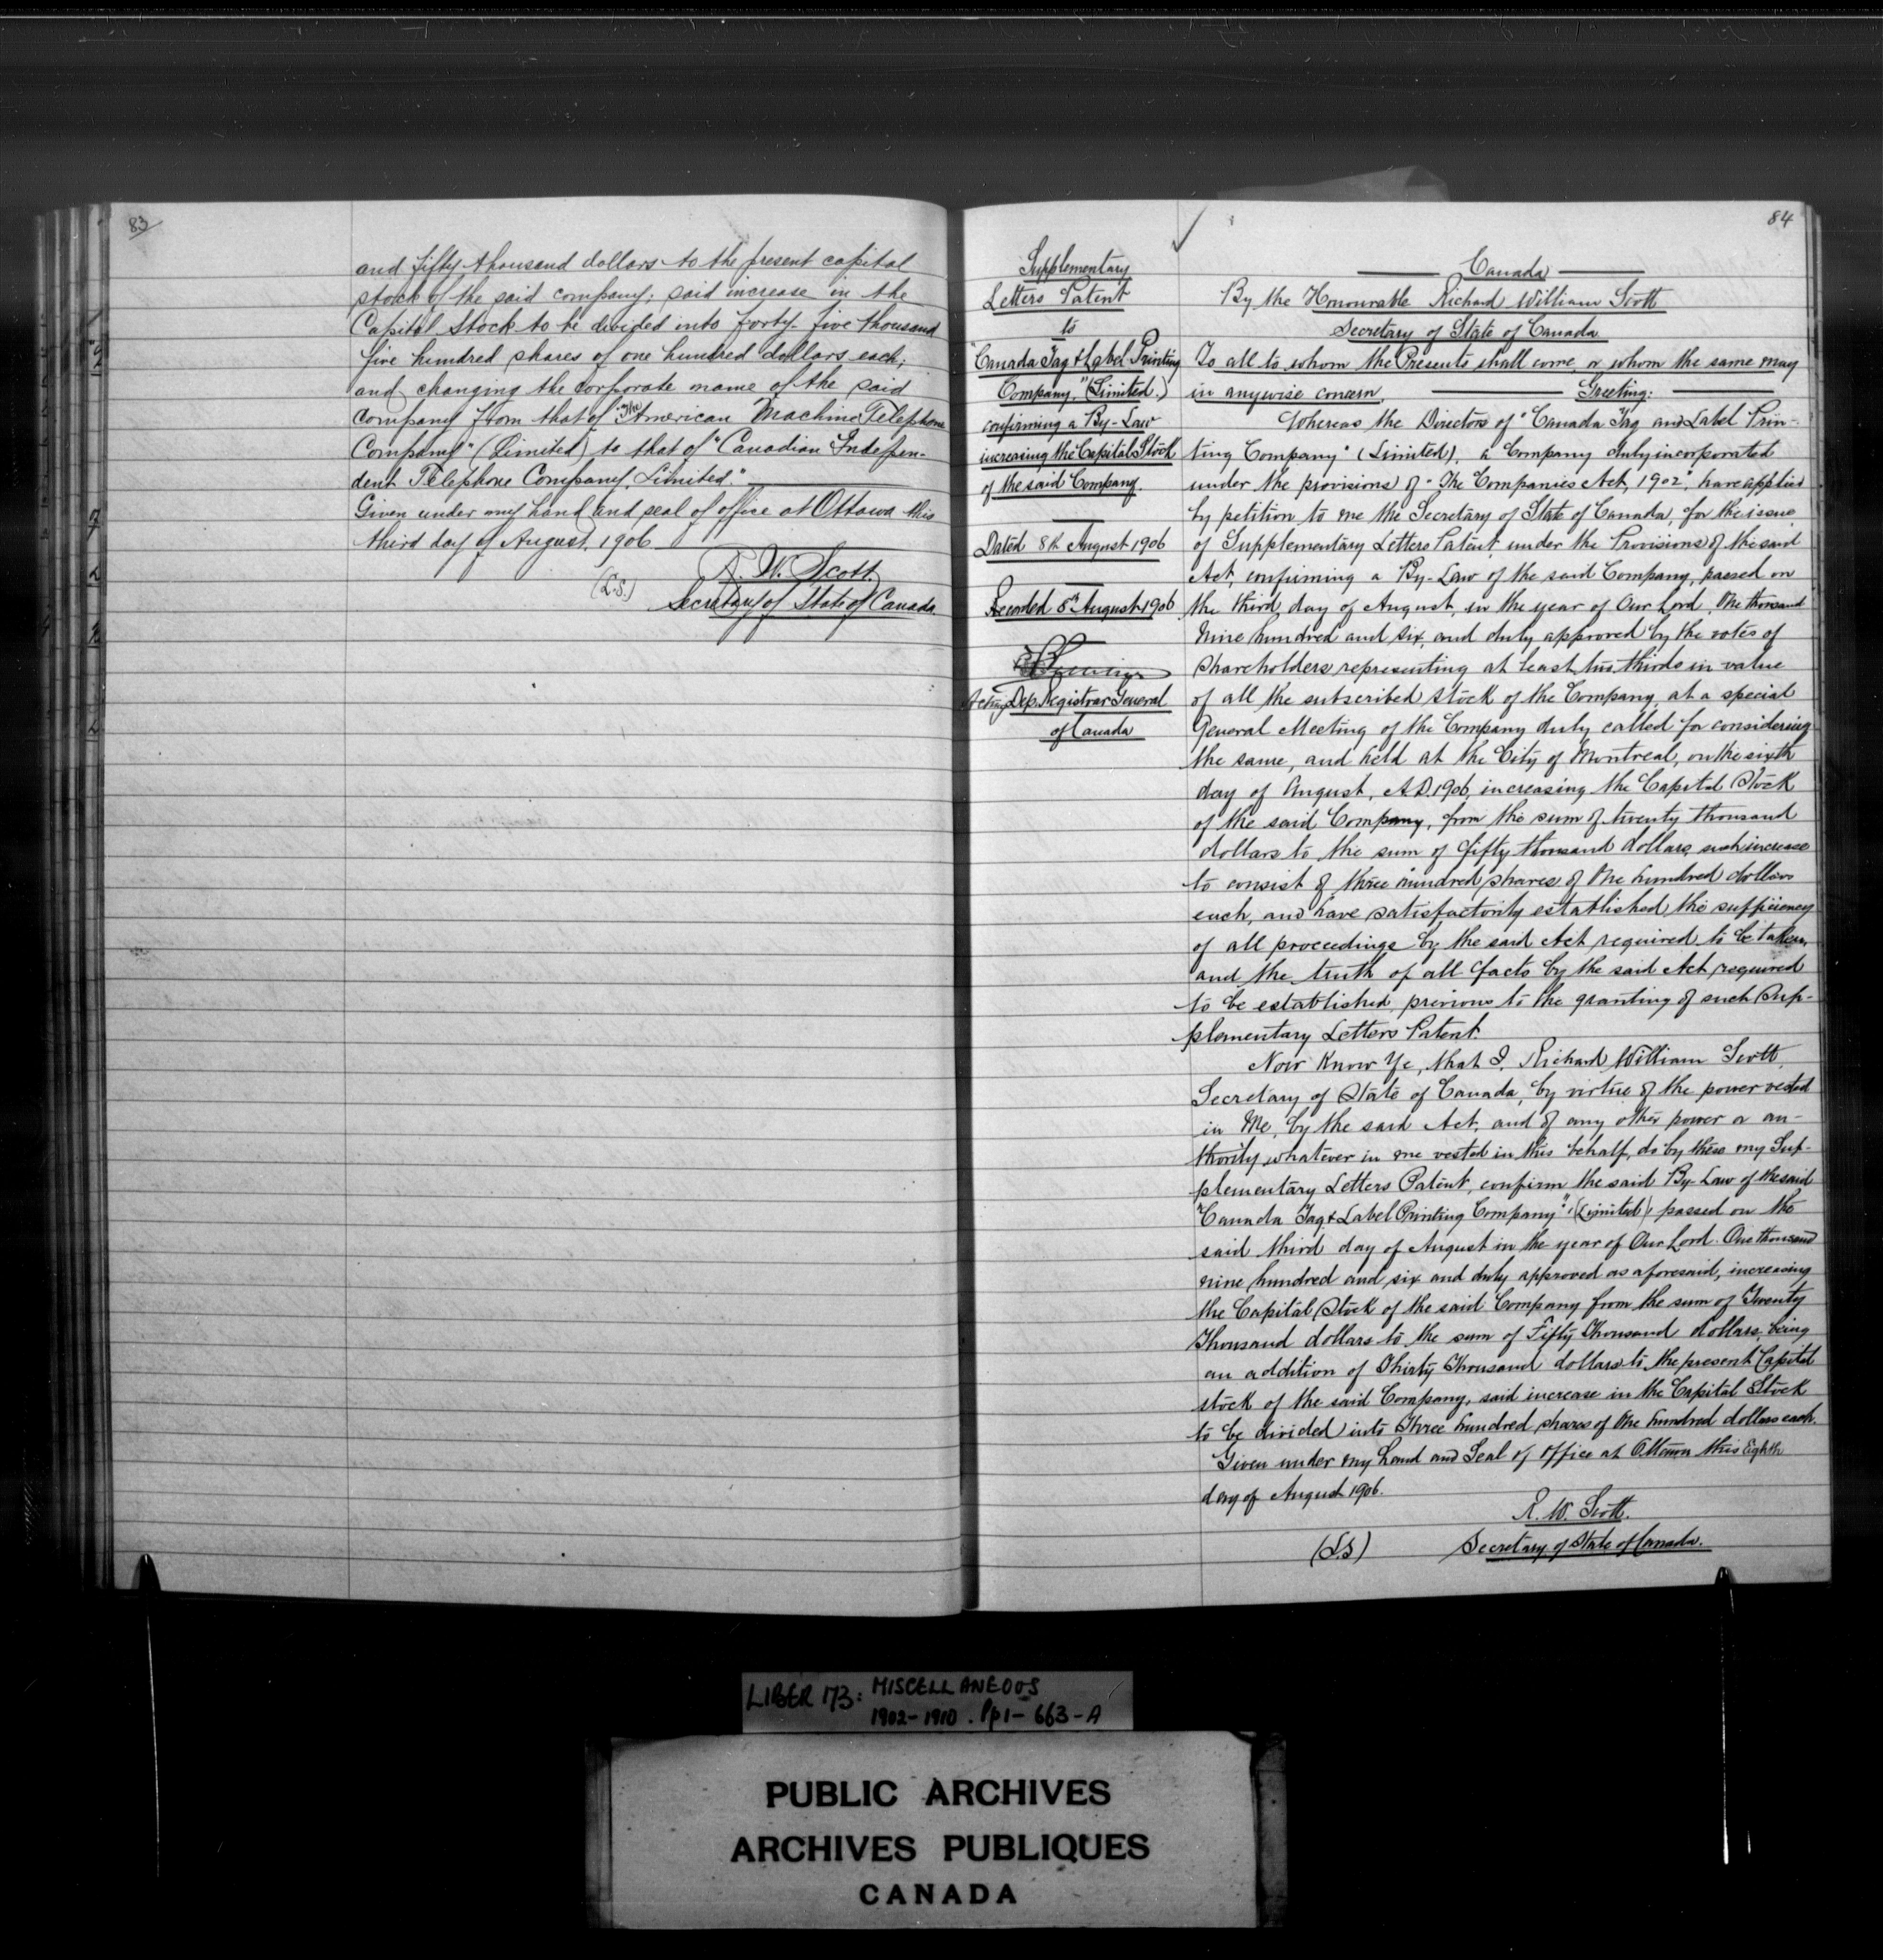 83
and fifty thousand dollars to the present capital
stock of the said company; said increase in the
Capital Stock to be divided into forty-five thousand
five hundred shares of one hundred dollars each;
and changing the corporate name of the said
company from that of "The American Machine Telephone
Company" (Limited) to that of "Canadian Indepen-
dent Telephone Company, Limited."
Given under my hand and seal of office at Ottawa this
third day of August, 1906
R. W. Scott
(L.S.) Secretary of State of Canada
84
Supplementary
Letters Patent
to
"Canada Tag & Label Printing
Company," (Limited.)
confirming a By-Law
increasing the Capital Stock
of the said Company.
Dated 8th August 1906
Recorded 8th August 1906
Acting Dep. Registrar General
of Canada
Canada
By the Honourable Richard William Scott
Secretary of State of Canada
To all to whom the Presents shall come, or whom the same may
in anywise concern, Greeting:
Whereas the Directors of "Canada Tag and Label Prin-
ting Company" (Limited), a Company duly incorporated
under the provisions of "The Companies Act, 1902", have applied
by petition to me the Secretary of State of Canada, for the issue
of Supplementary Letters Patent, under the Provisions of the said
Act, confirming a By-Law of the said Company, passed on
the third day of August, in the year of Our Lord, One thousand
Nine hundred and six, and duly approved by the votes of
shareholders representing at least two thirds in value
of all the subscribed stock of the Company, at a special
General Meeting of the Company duly called for considering
the same, and held at the City of Montreal, on the sixth
day of August, A.D. 1906, increasing the Capital Stock
of the said Company, from the sum of twenty thousand
dollars to the sum of fifty thousand dollars, such increase
to consist of three hundred shares of One hundred dollars
each, and have satisfactorily established the sufficiency
of all proceedings by the said Act required to be taken,
and the truth of all facts by the said Act required
to be established, previous to the granting of such Sup-
plementary Letters Patent.
Now Know Ye, that I, Richard William Scott,
Secretary of State of Canada, by virtue of the power vested
in Me, by the said Act, and of any other power or au-
thority whatever in me vested in this behalf, do by these my Sup-
plementary Letters Patent, confirm the said By-Law of the said
"Canada Tag & Label Printing Company", (Limited) passed on the
said third day of August in the year of Our Lord One thousand
nine hundred and six and duly approved as aforesaid, increasing
the Capital Stock of the said Company from the sum of Twenty
Thousand dollars to the sum of Fifty Thousand dollars, being
an addition of Thirty Thousand dollars to the present Capital
stock of the said Company, said increase in the Capital Stock
to be divided into Three hundred shares of One hundred dollars each.
Given under my hand and Seal of Office at Ottawa this Eighth
day of August 1906.
R. W. Scott.
(L.S) Secretary of State of Canada.
LIBER 173: MISCELLANEOUS
1902-1910. Pp 1-663-A
PUBLIC ARCHIVES
ARCHIVES PUBLIQUES
CANADA